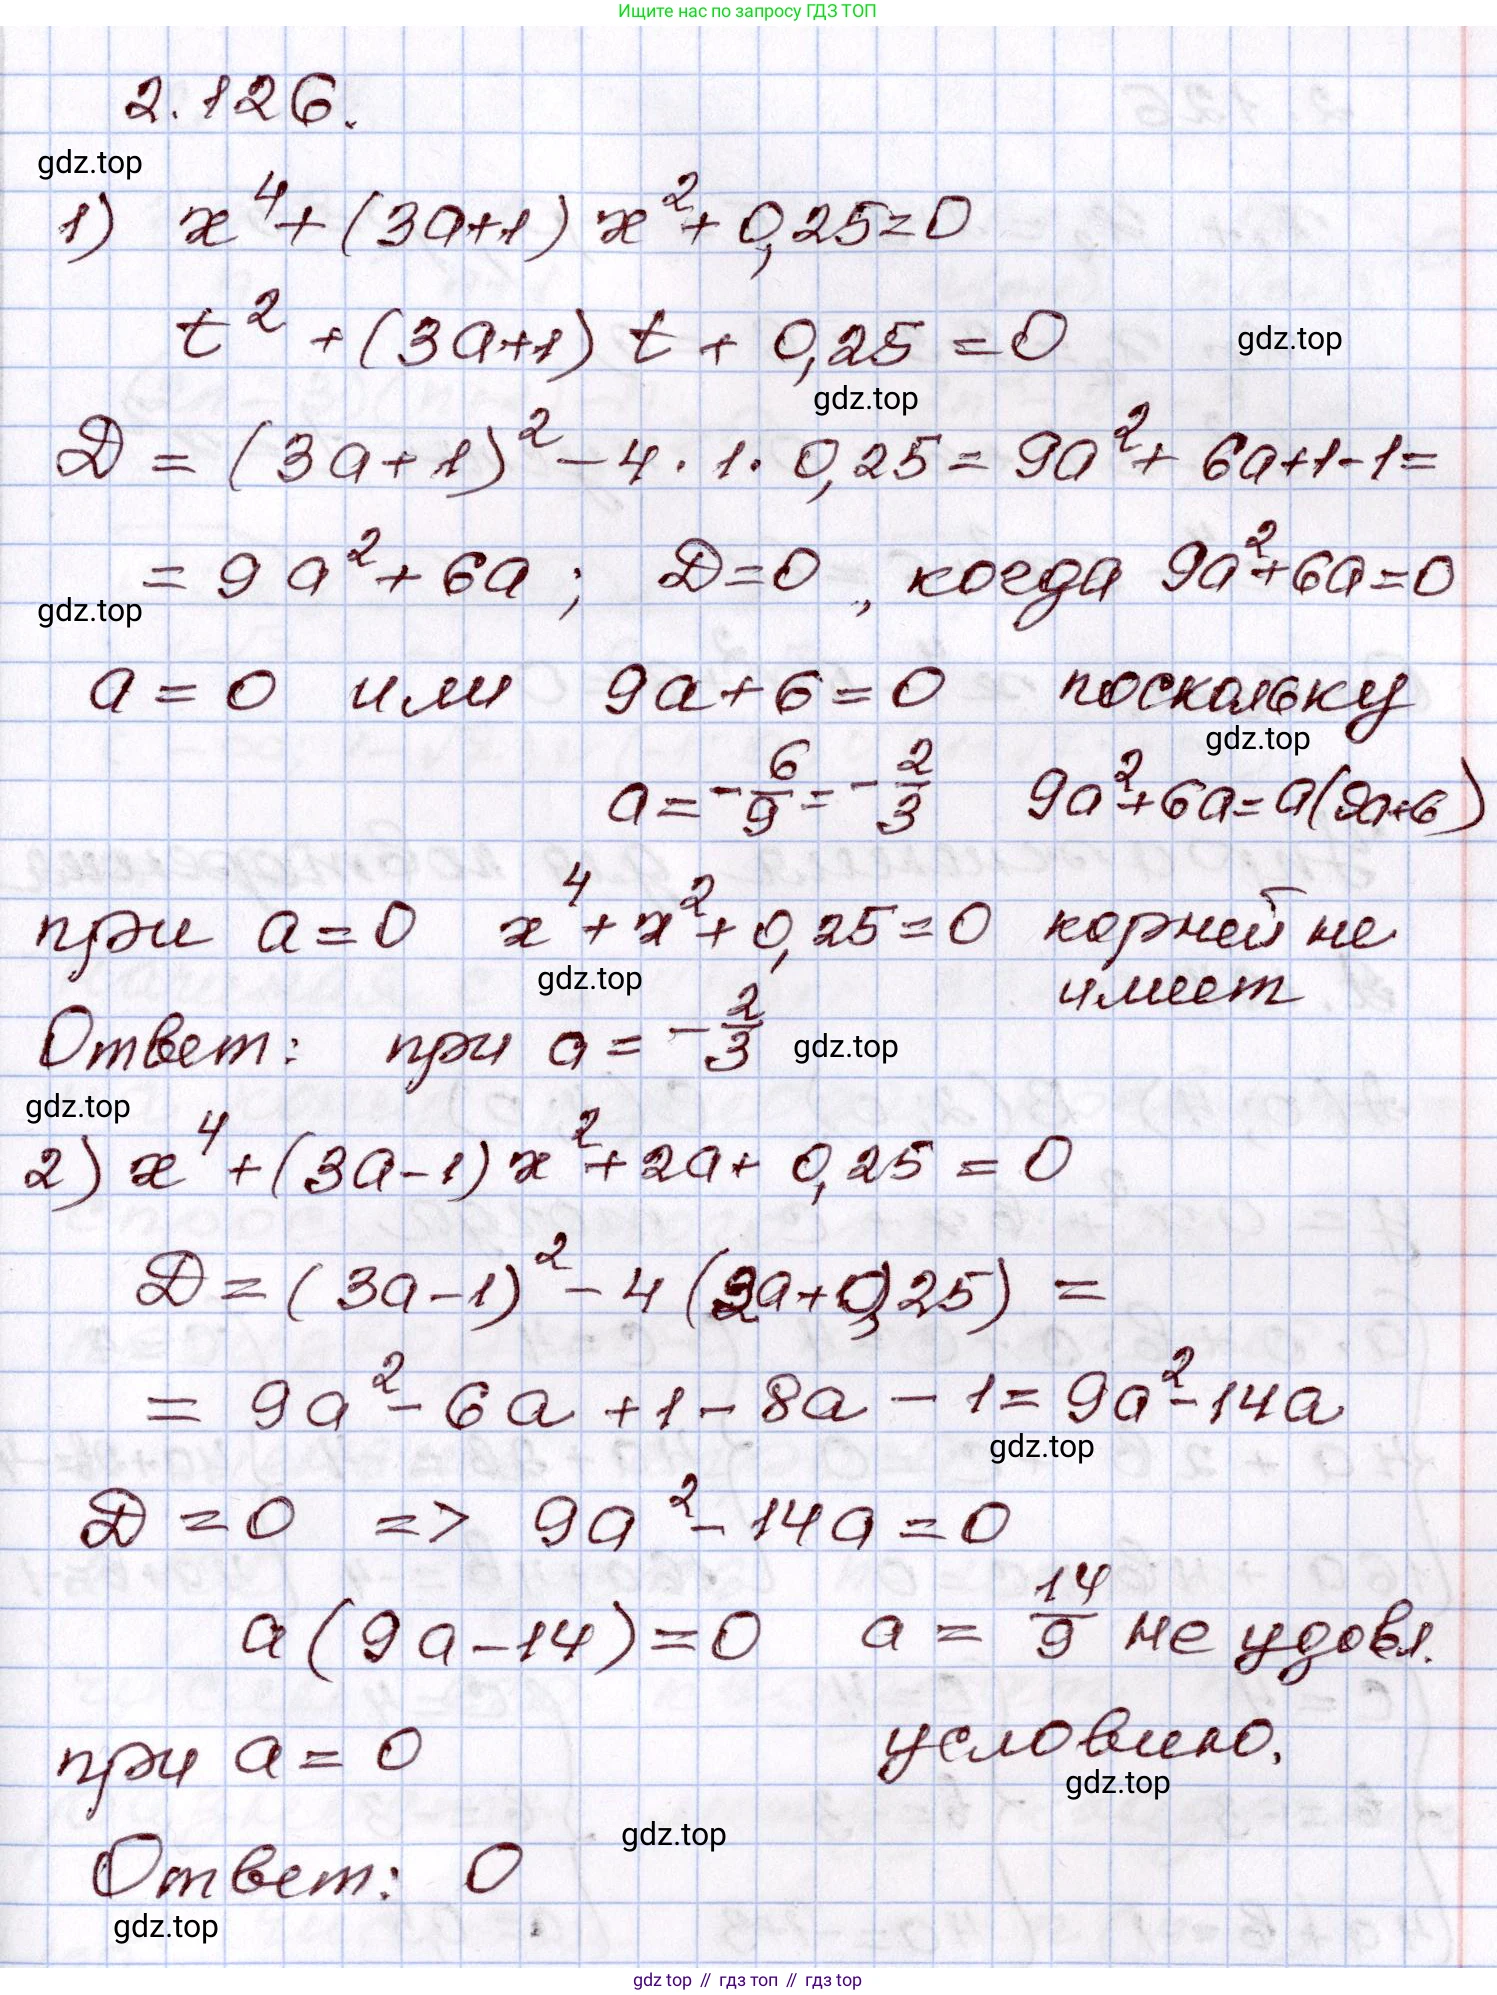 Ищите нас по запросу ГДЗ ТОП
2.126.
gdz.top
1) x⁴+(3a+1)x²+0,25=0
t²+(3a+1)t+0,25=0
gdz.top
gdz.top
D=(3a+1)²-4·1·0,25=9a²+6a+1-1=
=9a²+6a; D=0, когда 9a²+6a=0
gdz.top
a=0 или 9a+6=0 поскольку
gdz.top
a=-6/9=-2/3 9a²+6a=a(9a+6)
при a=0 x⁴+x²+0,25=0 корней не
gdz.top
имеет
Ответ: при a=-2/3
gdz.top
gdz.top
2) x⁴+(3a-1)x²+2a+0,25=0
D=(3a-1)²-4(2a+0,25)=
=9a²-6a+1-8a-1=9a²-14a
gdz.top
D=0 => 9a²-14a=0
a(9a-14)=0 a=14/9 не удовл.
при a=0 условию.
gdz.top
gdz.top
Ответ: 0
gdz.top
gdz top // гдз топ // гдз top